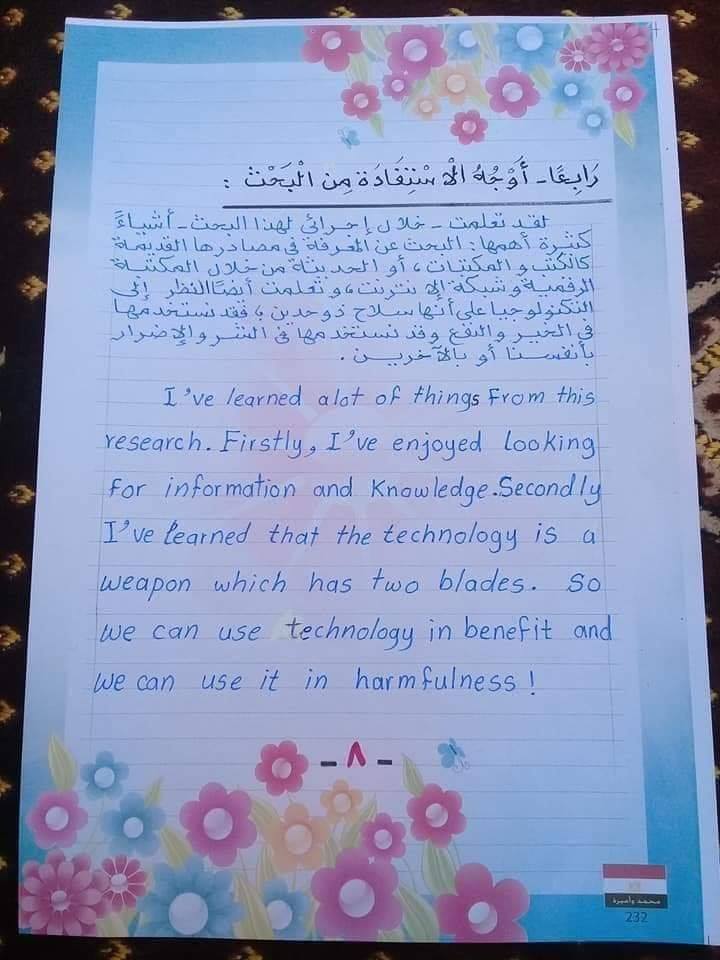 رَابِعًا - أَوْجُهُ الْاسْتِفَادَة مِنَ الْبَحْث :
لقد تعلمت - خلال إجرائي لهذا البحث - أشياءً
كثيرة أهمها : البحث عن المعرفة في مصادرها القديمة
كالكتب والمكتبات ، أو الحديثة من خلال المكتبة
الرقمية وشبكة الإنترنت ، وتعلمت أيضًا النظر إلى
التكنولوجيا على أنها سلاح ذو حدين ؛ فقد نستخدمها
في الخير والنفع وقد نستخدمها في الشر والإضرار
بأنفسنا أو بالآخرين .
I've learned alot of things From this
research. Firstly, I've enjoyed Looking
For information and Knowledge.Secondly
I've learned that the technology is a
weapon which has two blades. So
we can use technology in benefit and
we can use it in harmfulness !
- ٨ -
محمد وأميرة
232